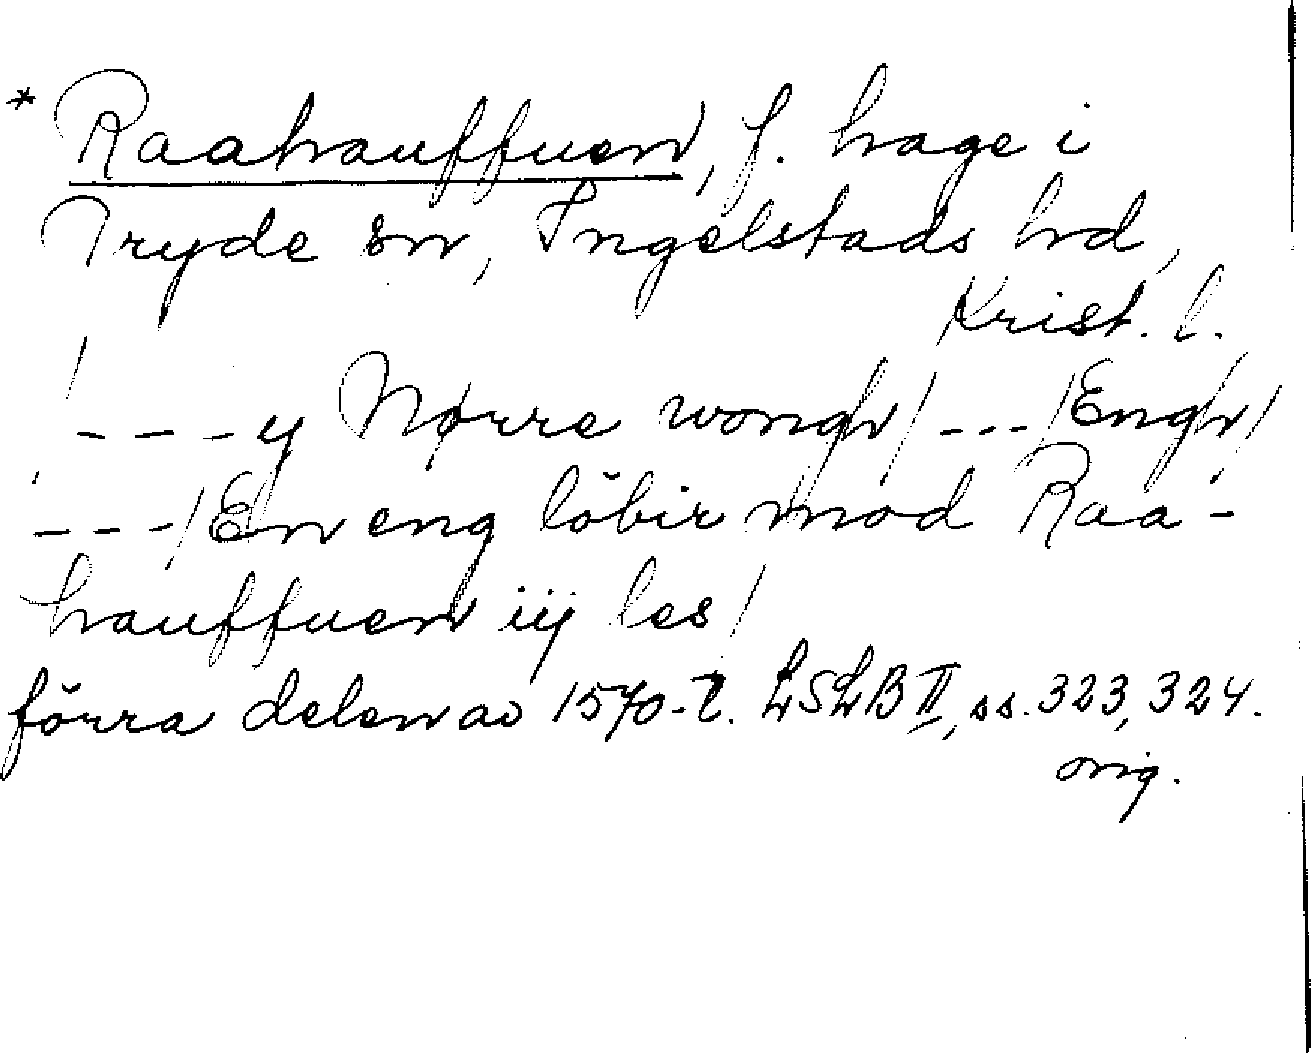 * Raahauffuen, f. hage i
Tryde sn, Ingelstads hd,
Krist. l.
/ - - - y Nørre wongh / - - - / Engh /
- - - / En eng löbir mod Raa-
hauffuen iij les /
förra delen av 1570-t. LSLB II, ss. 323, 324.
orig.